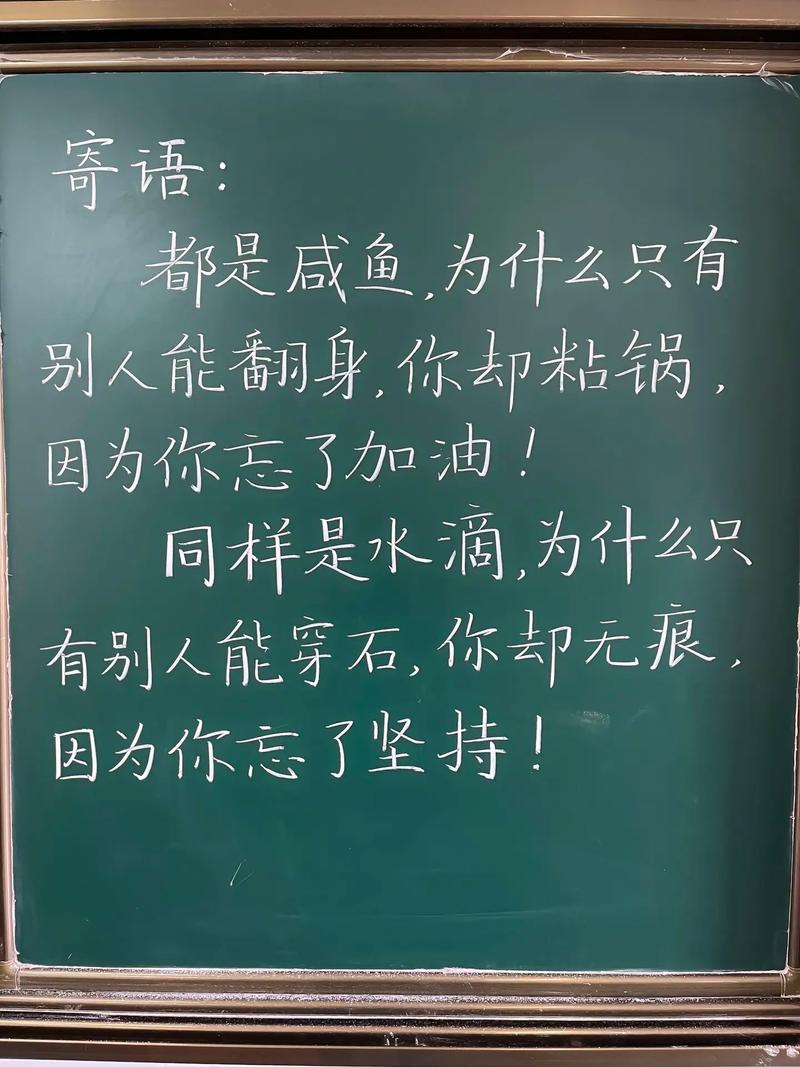 寄语:
都是咸鱼,为什么只有
别人能翻身,你却粘锅,
因为你忘了加油!
同样是水滴,为什么只
有别人能穿石,你却无痕,
因为你忘了坚持!